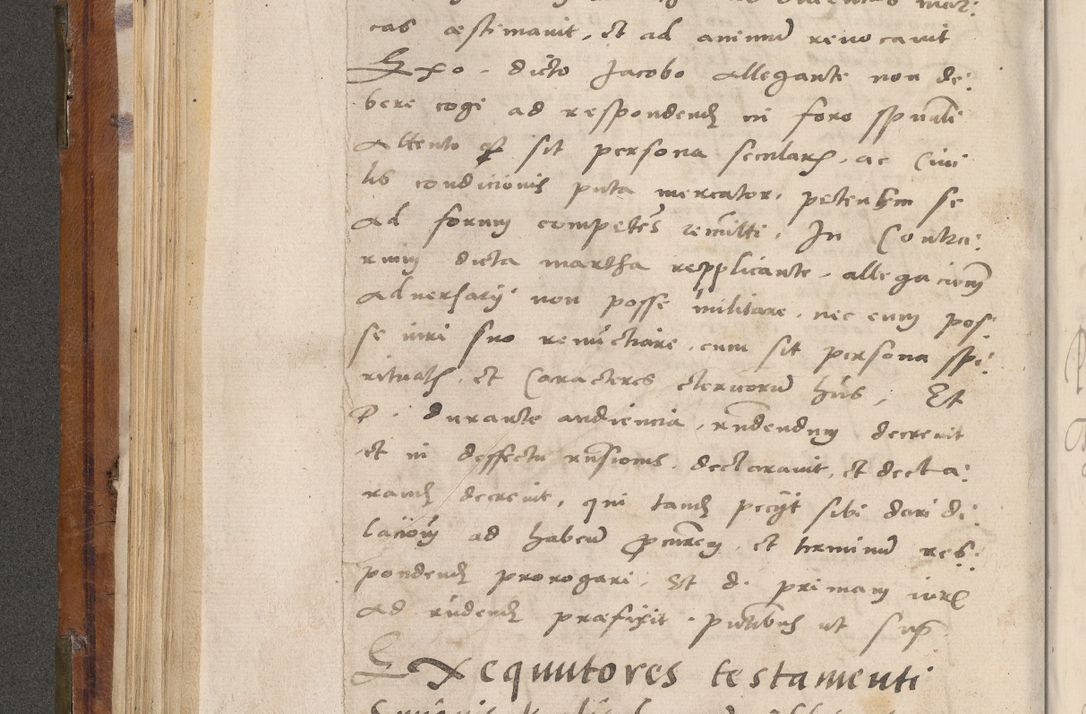 cas æstimavit, et ad animũ revocavit
Exo. dicto Jacobo allegante non de:
bere cogi ad respondendũ in foro spũali
Attento q̃ sit persona secularis, ac Civi
lis condicionis puta mercator, petentem se
ad forum competẽs remitti, In Contra:
rium dicta martha repplicante, allegacionẽ
adversarij non posse militare, nec eum pos:
se iuri suo renũctiare, cum sit persona spi:
ritualis, et Caracteres clericorũ hñs, Et
D. durante audiencia, rñdendum decrevit
et in deffectu rñsionis, declaravit, et decla:
randũ decrevit, qui tandẽ pecijt sibi dari di:
lacionẽ ad habeñ procurem, et terminũ res:
pondendi prorogari, Et d. primam iuris
ad rñdendũ præfixit, pñtibus ut sup.
Exequutores testamenti